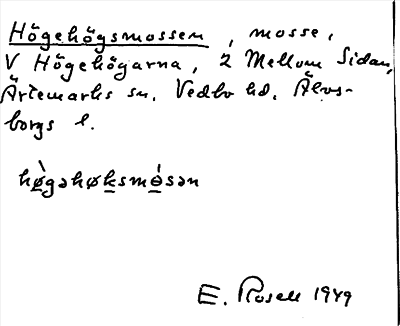 Högehögsmossen, mosse,
V Högehögarna, 2 Mellom Sidan,
Ärtemarks sn. Vedbo hd. Älvs-
borgs l.
hø̀gəhøksmɵ́sən
E. Rosell 1949